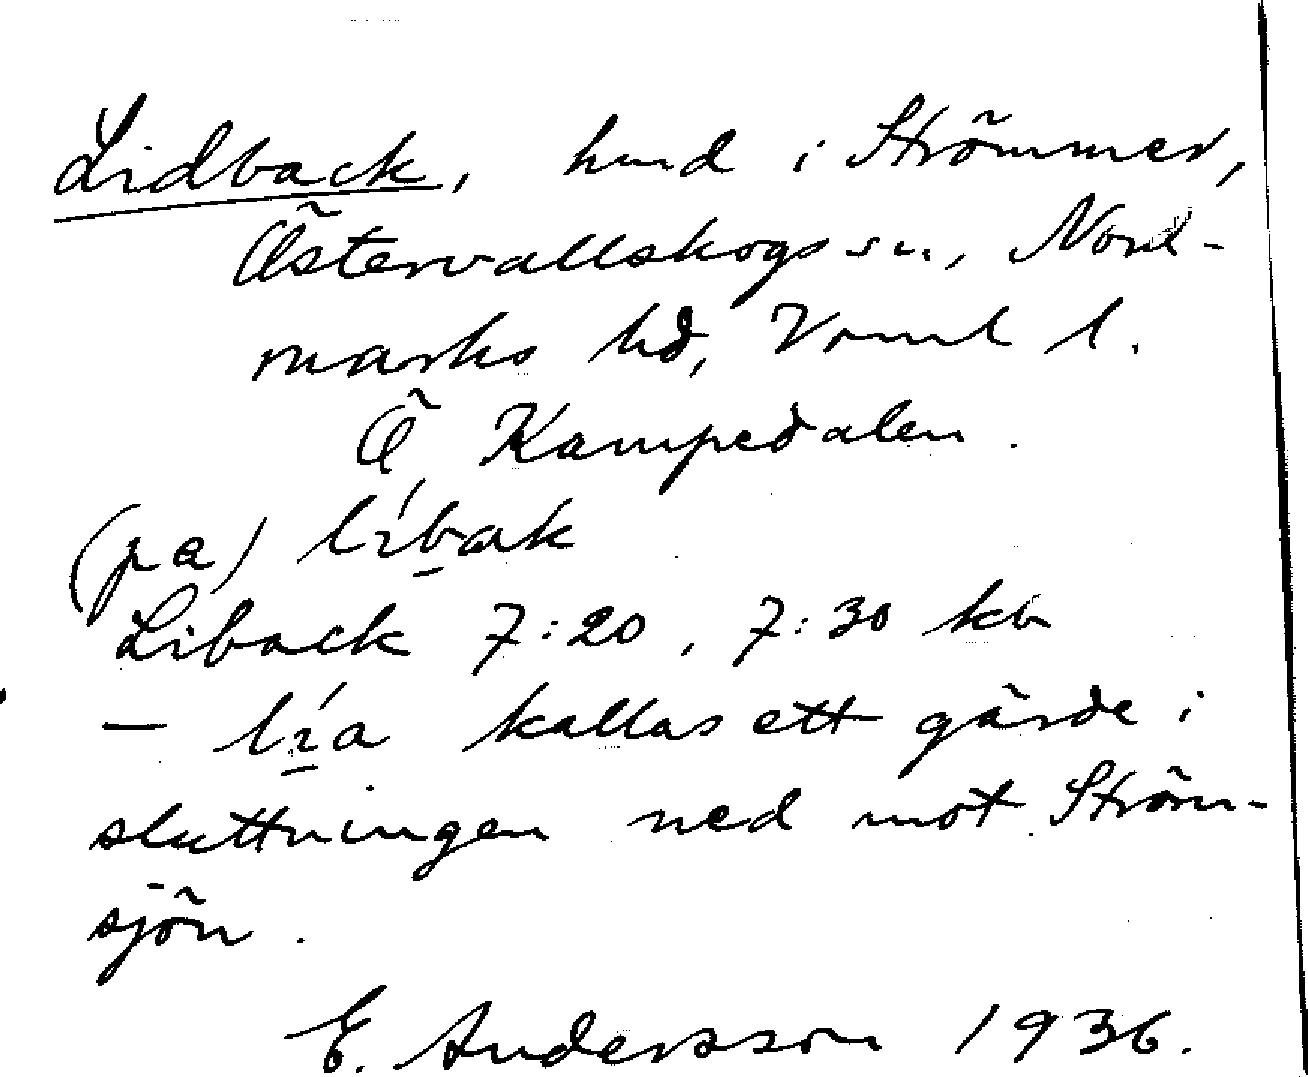 Lidback, hmd i Strömmer,
Östervallskogs sn, Nord-
marks hd, Vrml l.
Ö Kampedalen.
(pa) líbak
Liback 7:20, 7:30 kb
— lía kallas ett gärde i
sluttningen ned mot Ström-
sjön.
E. Andersson 1936.